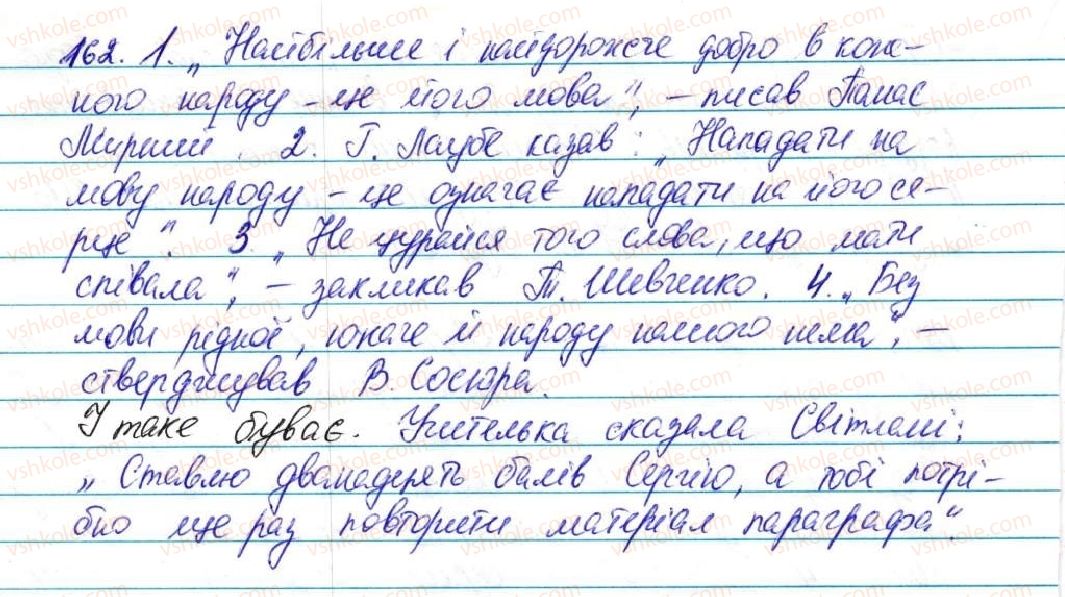 162. 1. „Найбільше і найдорожче добро в кож-
ного народу – це його мова", – писав Панас
Мирний. 2. Г. Лаубе казав: „Нападати на
мову народу – це означає нападати на його се-
рце". 3. „Не цурайся того слова, що мати
співала", – закликав Т. Шевченко. 4. „Без
мови рідної, юначе й народу нашого нема", –
стверджував В. Сосюра.
І таке буває. Учителька сказала Світлані:
„Ставлю дванадцять балів Сергію, а тобі потрі-
бно ще раз повторити матеріал параграфа".